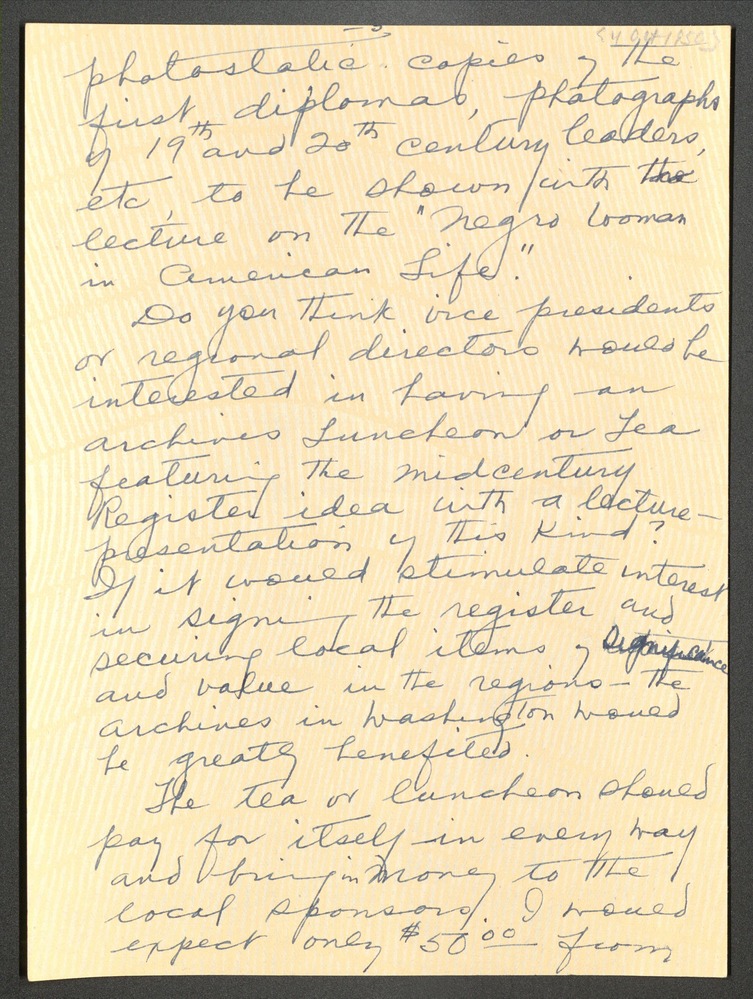 -3-
photostatic copies of the
first diplomas, photographs
of 19th and 20th century leaders,
etc, to be shown with the
lecture on the "Negro Woman
in American Life."
Do you think vice presidents
or regional directors would be
interested in having an
archives Luncheon or Tea
featuring the midcentury
Register idea with a lecture-
presentation of this kind?
If it would stimulate interest
in signing the register and
securing local items of significance
and value in the regions - the
archives in Washington would
be greatly benefited.
The tea or luncheon should
pay for itself in every way
and bring in money to the
local sponsors. I would
expect only $50.00 from